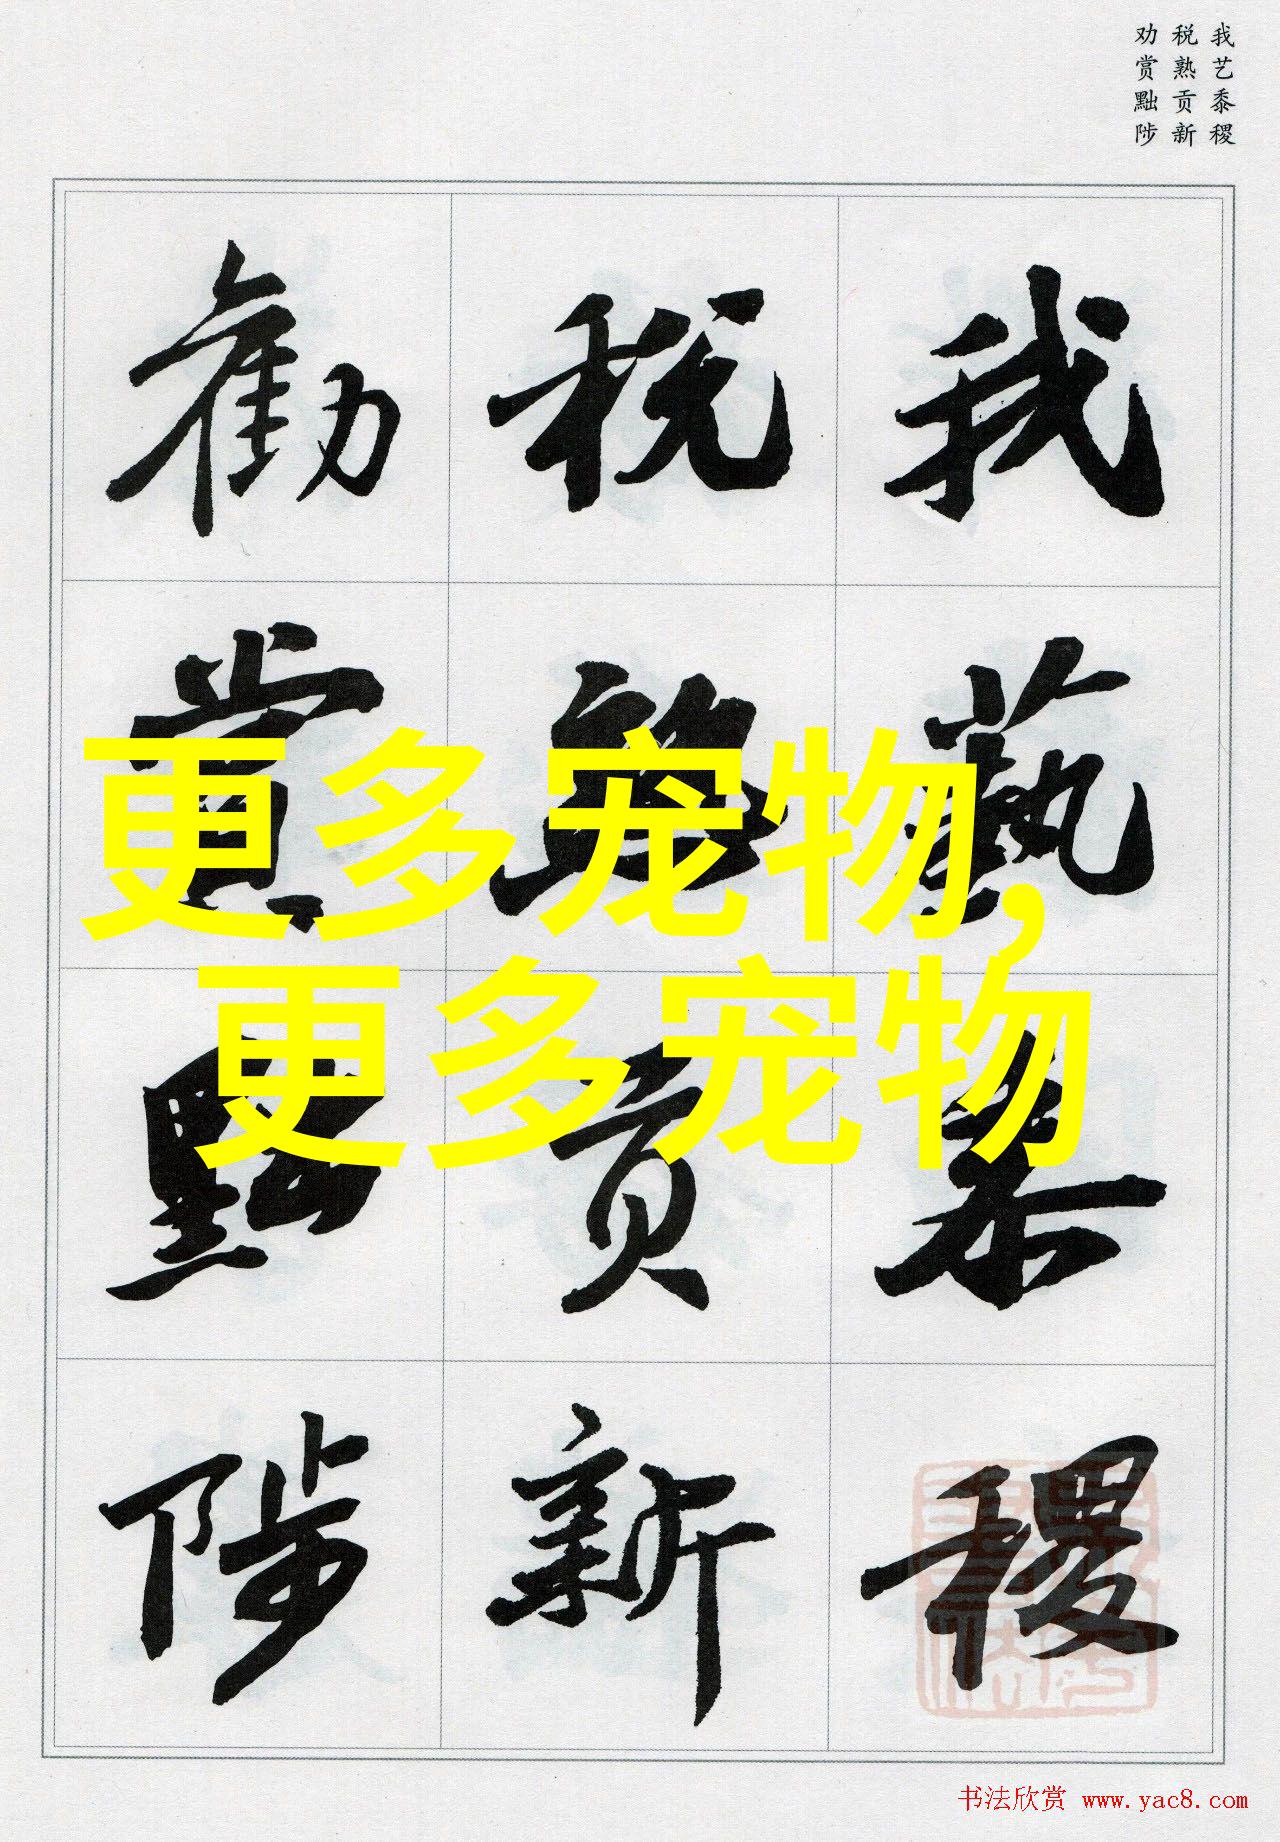 我艺黍稷
税熟贡新
劝赏黜陟
我藝黍稷
税熟貢新
勸賞黜陟
更多宠物,
更多宠物
书法欣赏 www.yac8.com